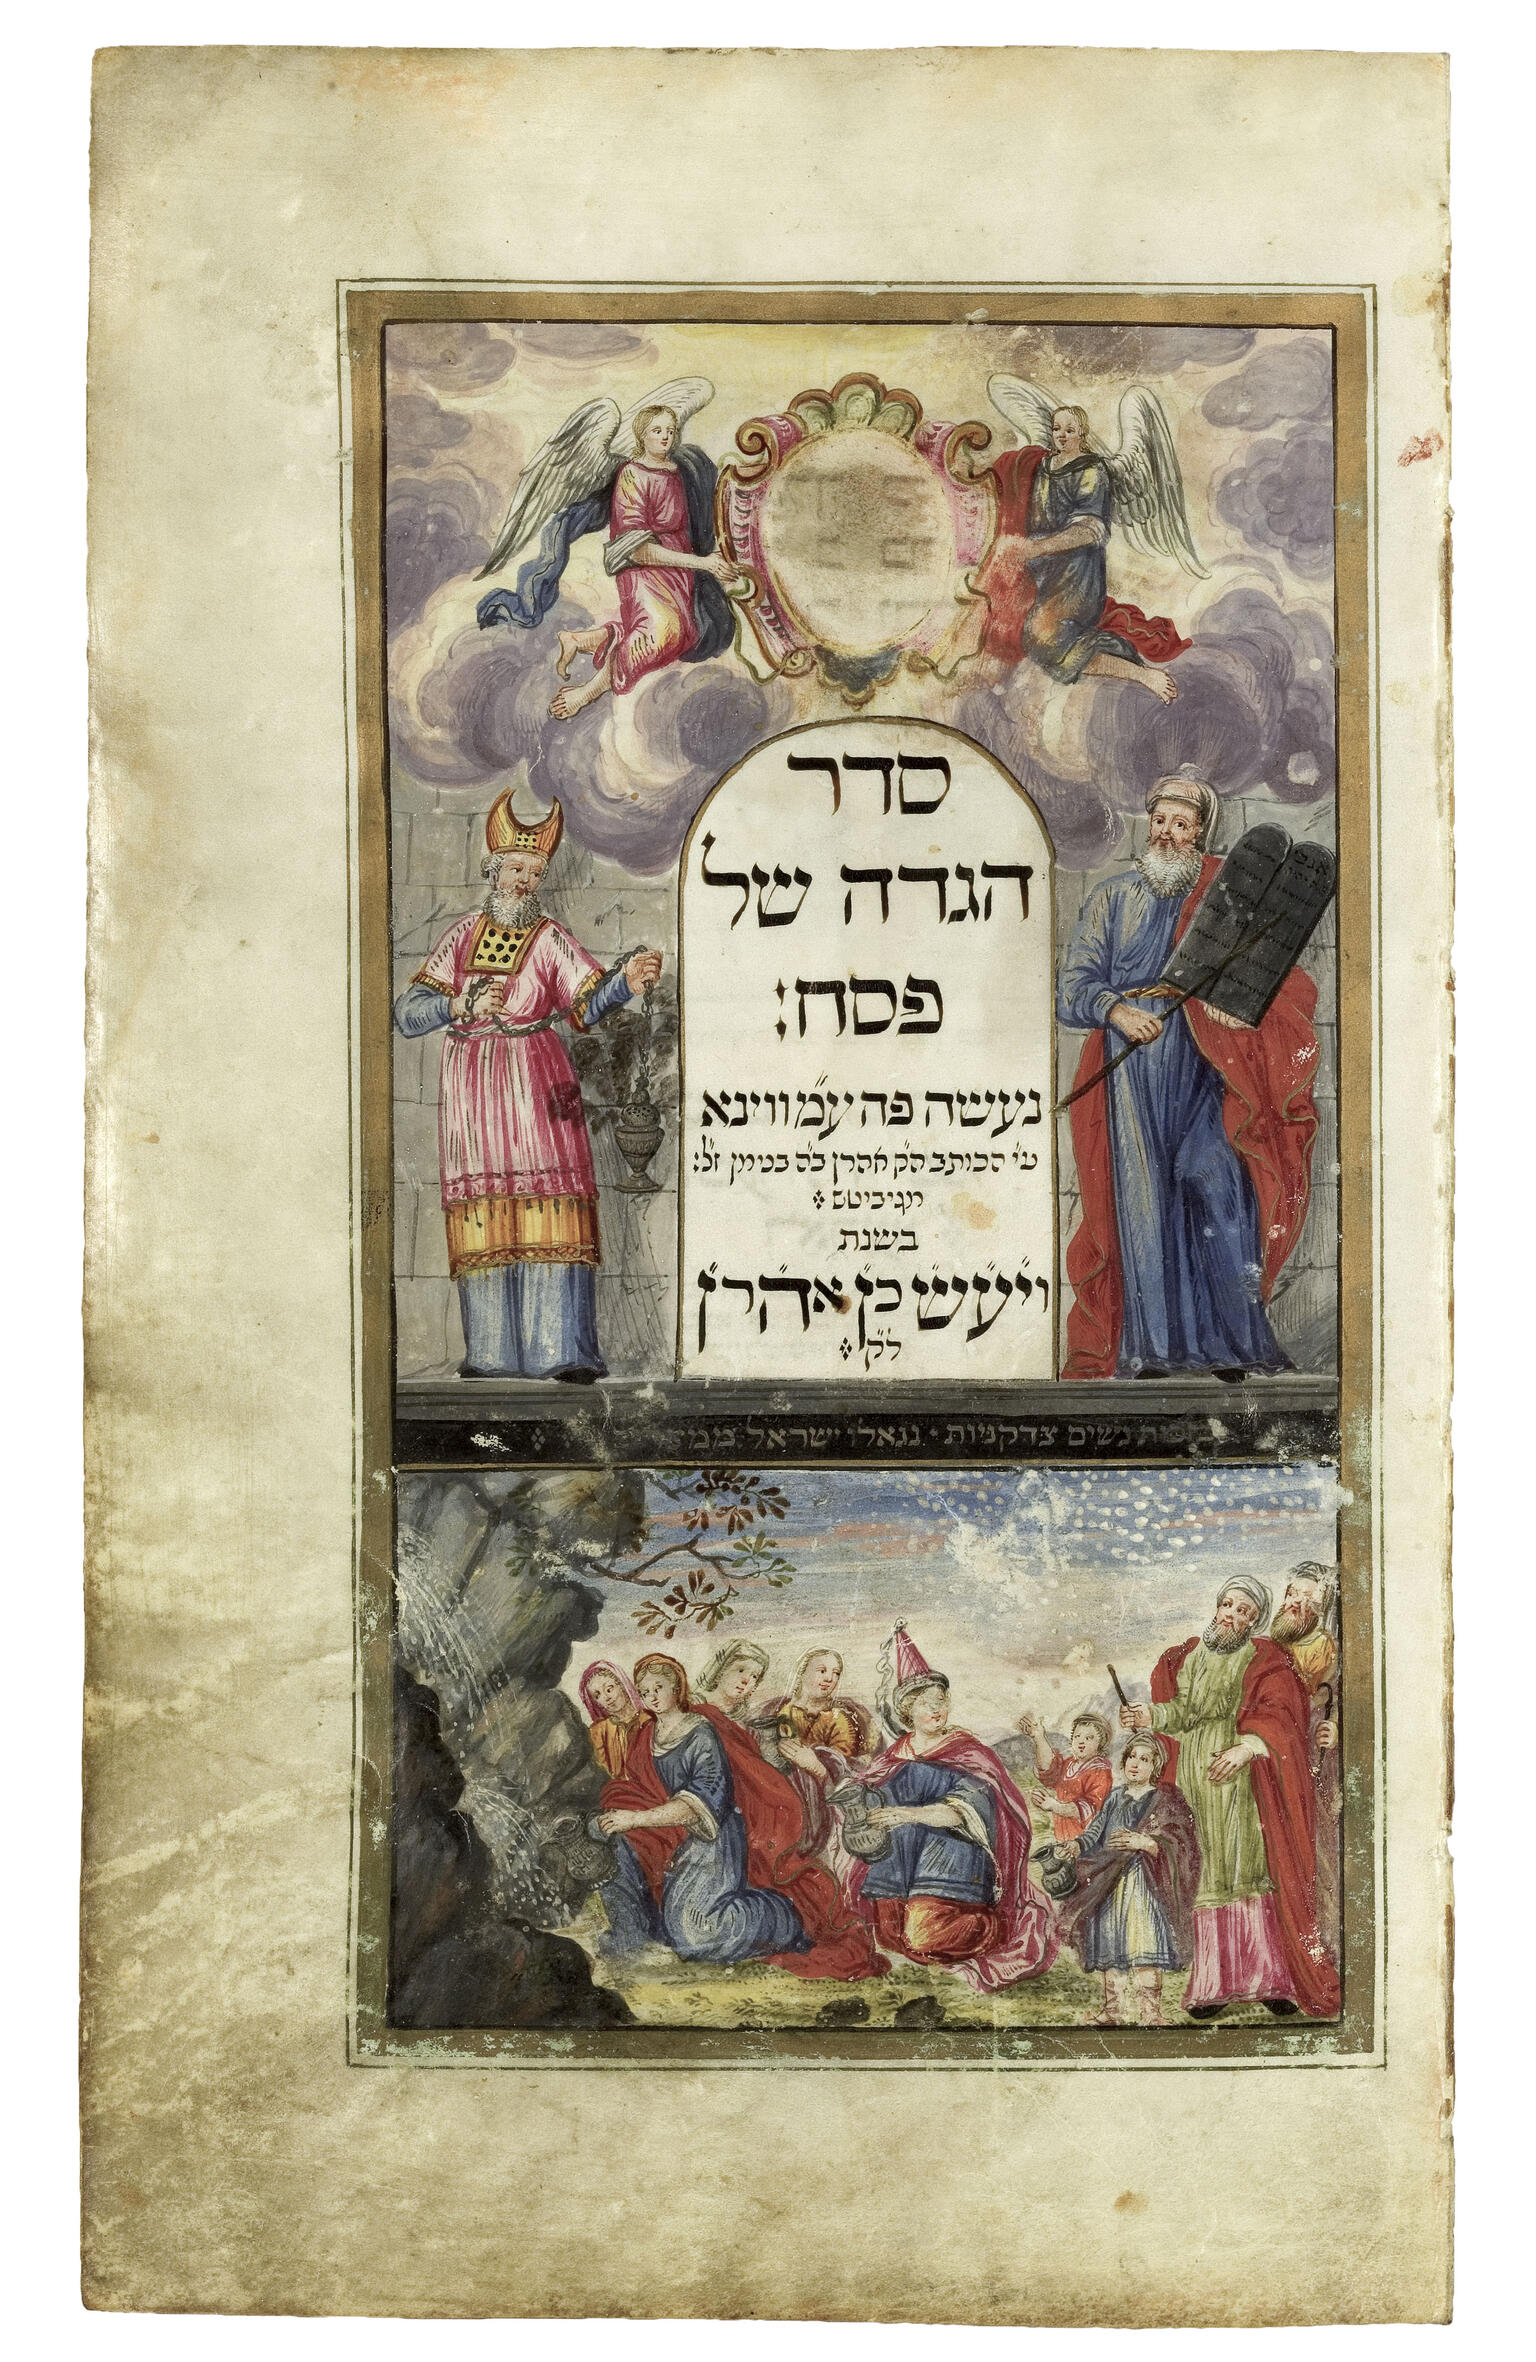 סדר
הגדה של
פסח:
נעשה פה עמ״ ווינא
ע״י הכותב הק׳ אהרן ב״ה בנימין ז״ל:
מגיביטש
בשנת
וי״ע״ש״ כ״ן א״ה״ר״ן״
לק״
נשים צדקניות · נגאלו ישראל